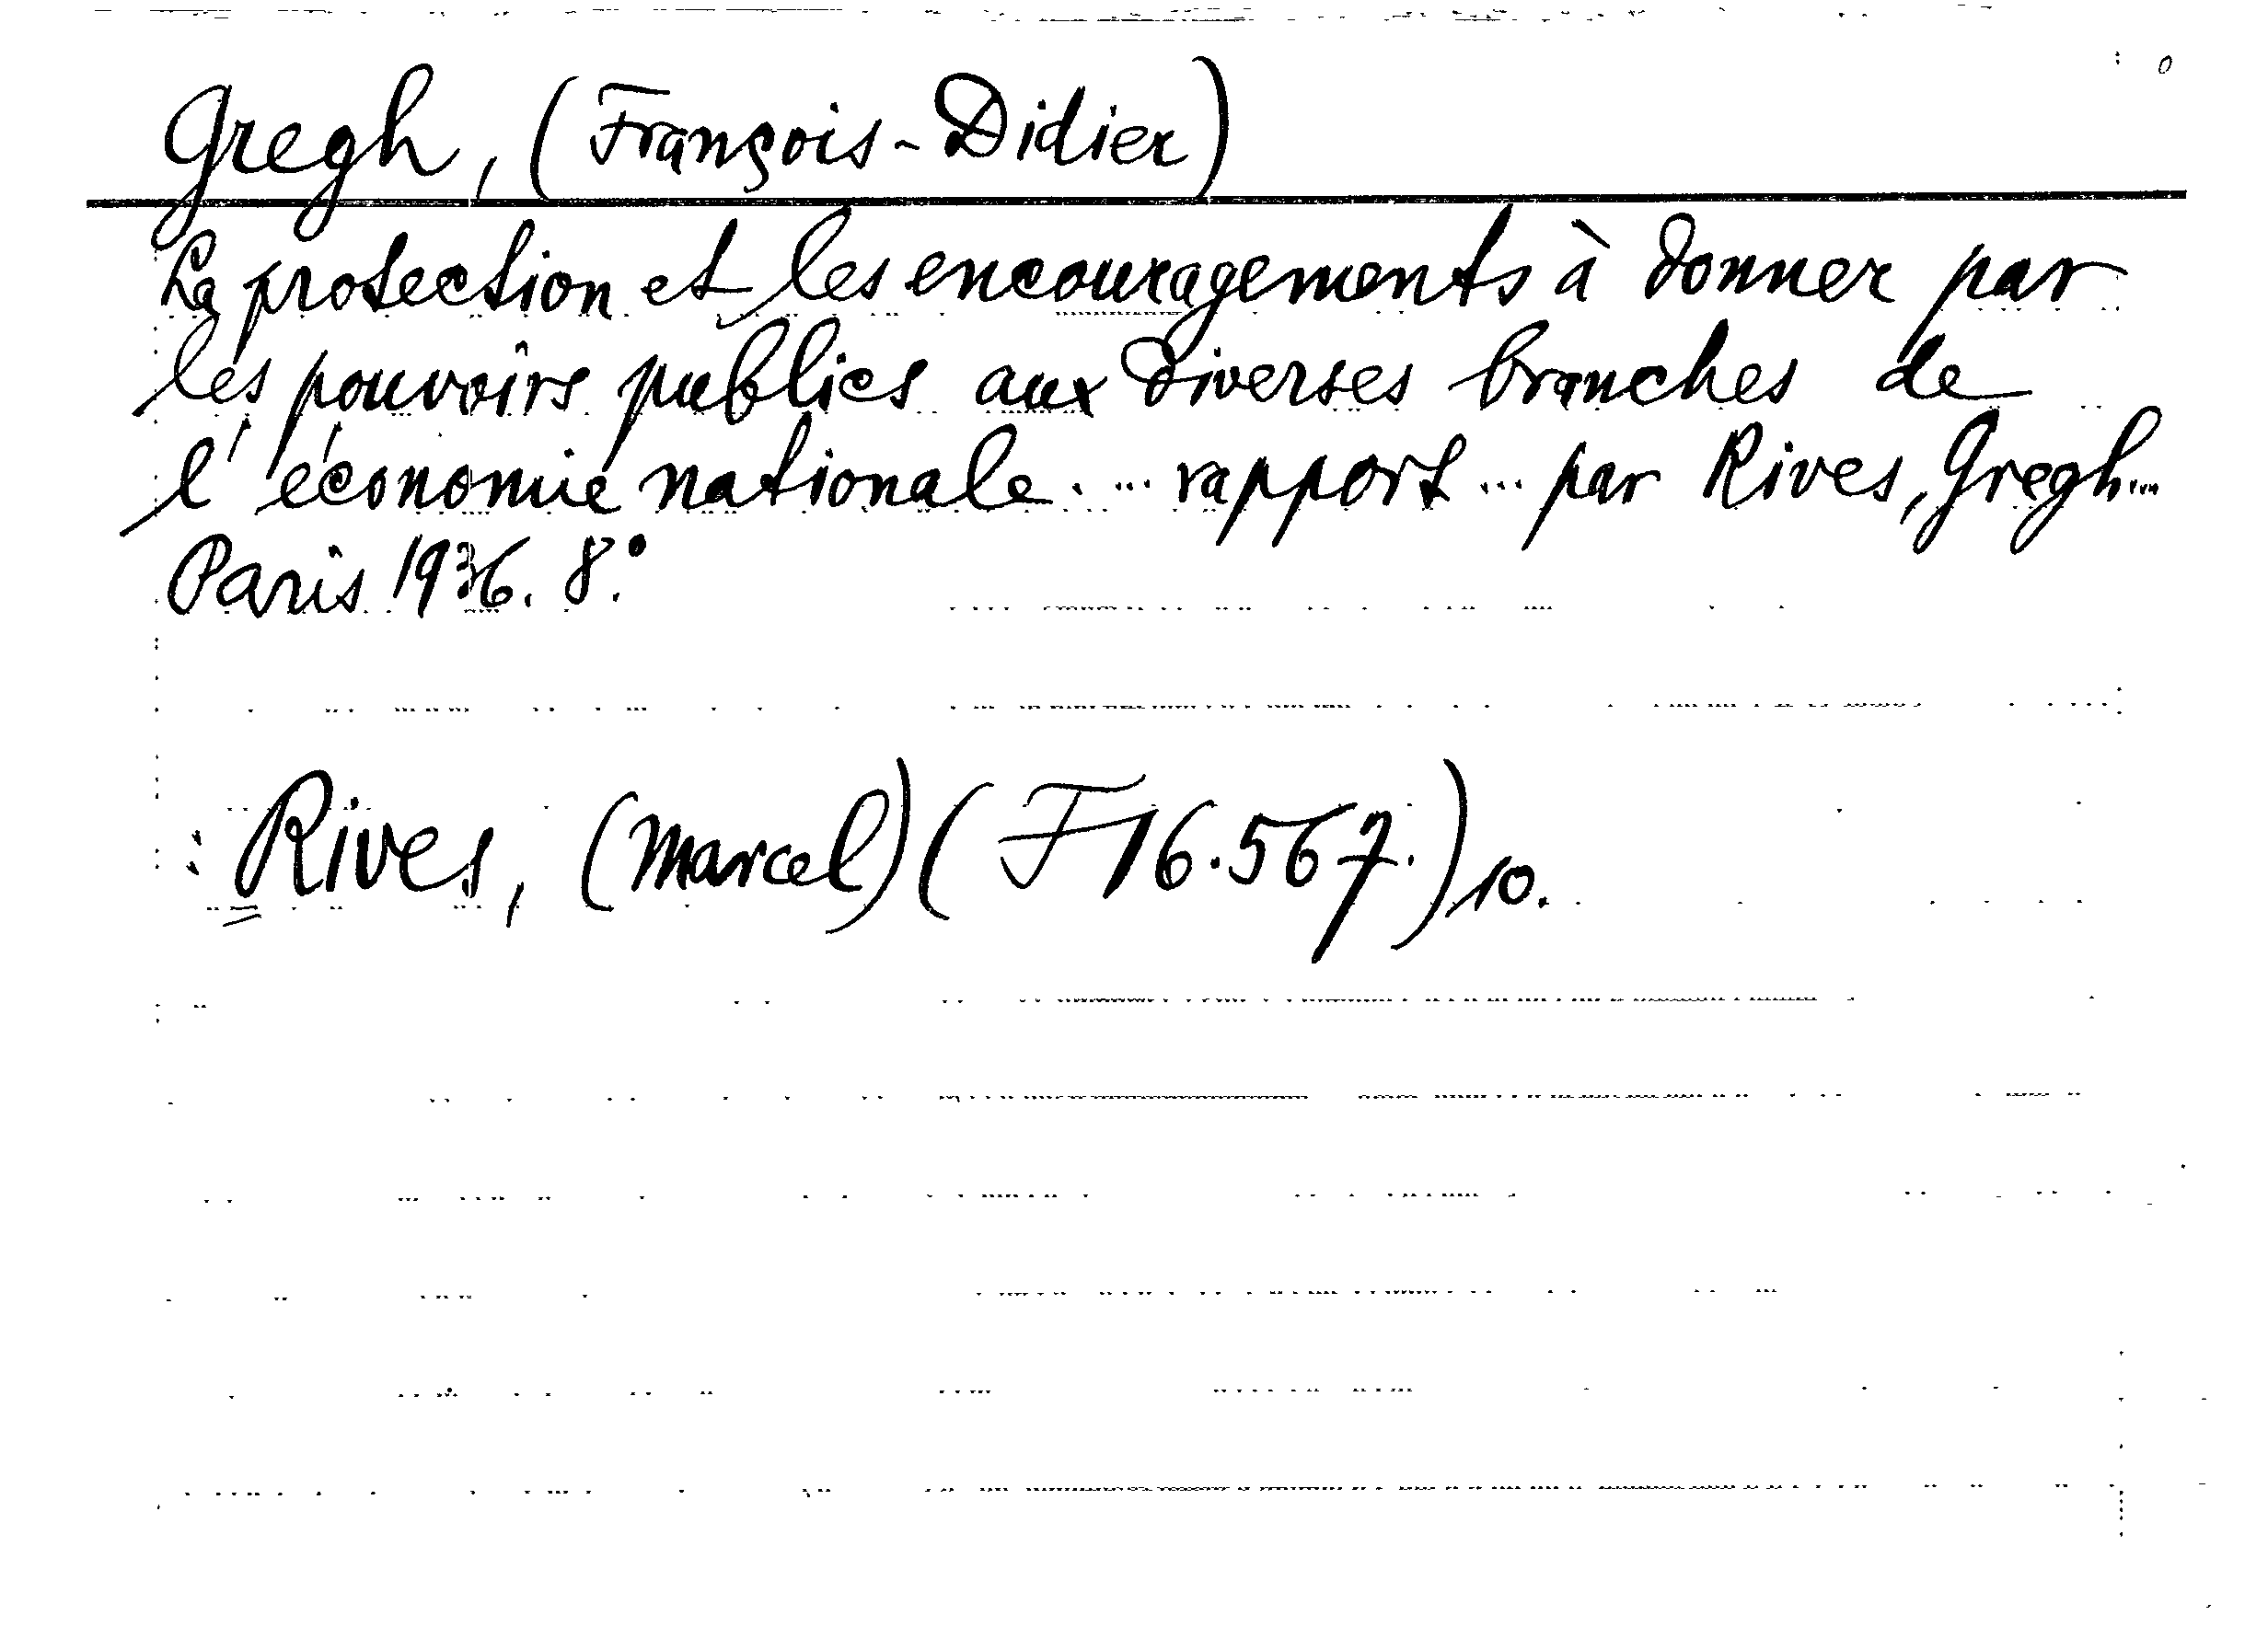 Gregh, (François-Didier)
La protection et les encouragements à donner par
les pouvoirs publics aux diverses branches de
l'économie nationale. ... rapport ... par Rives, Gregh...
Paris 1936. 8.°
: Rives, (Marcel) (F 16.567.) 10.